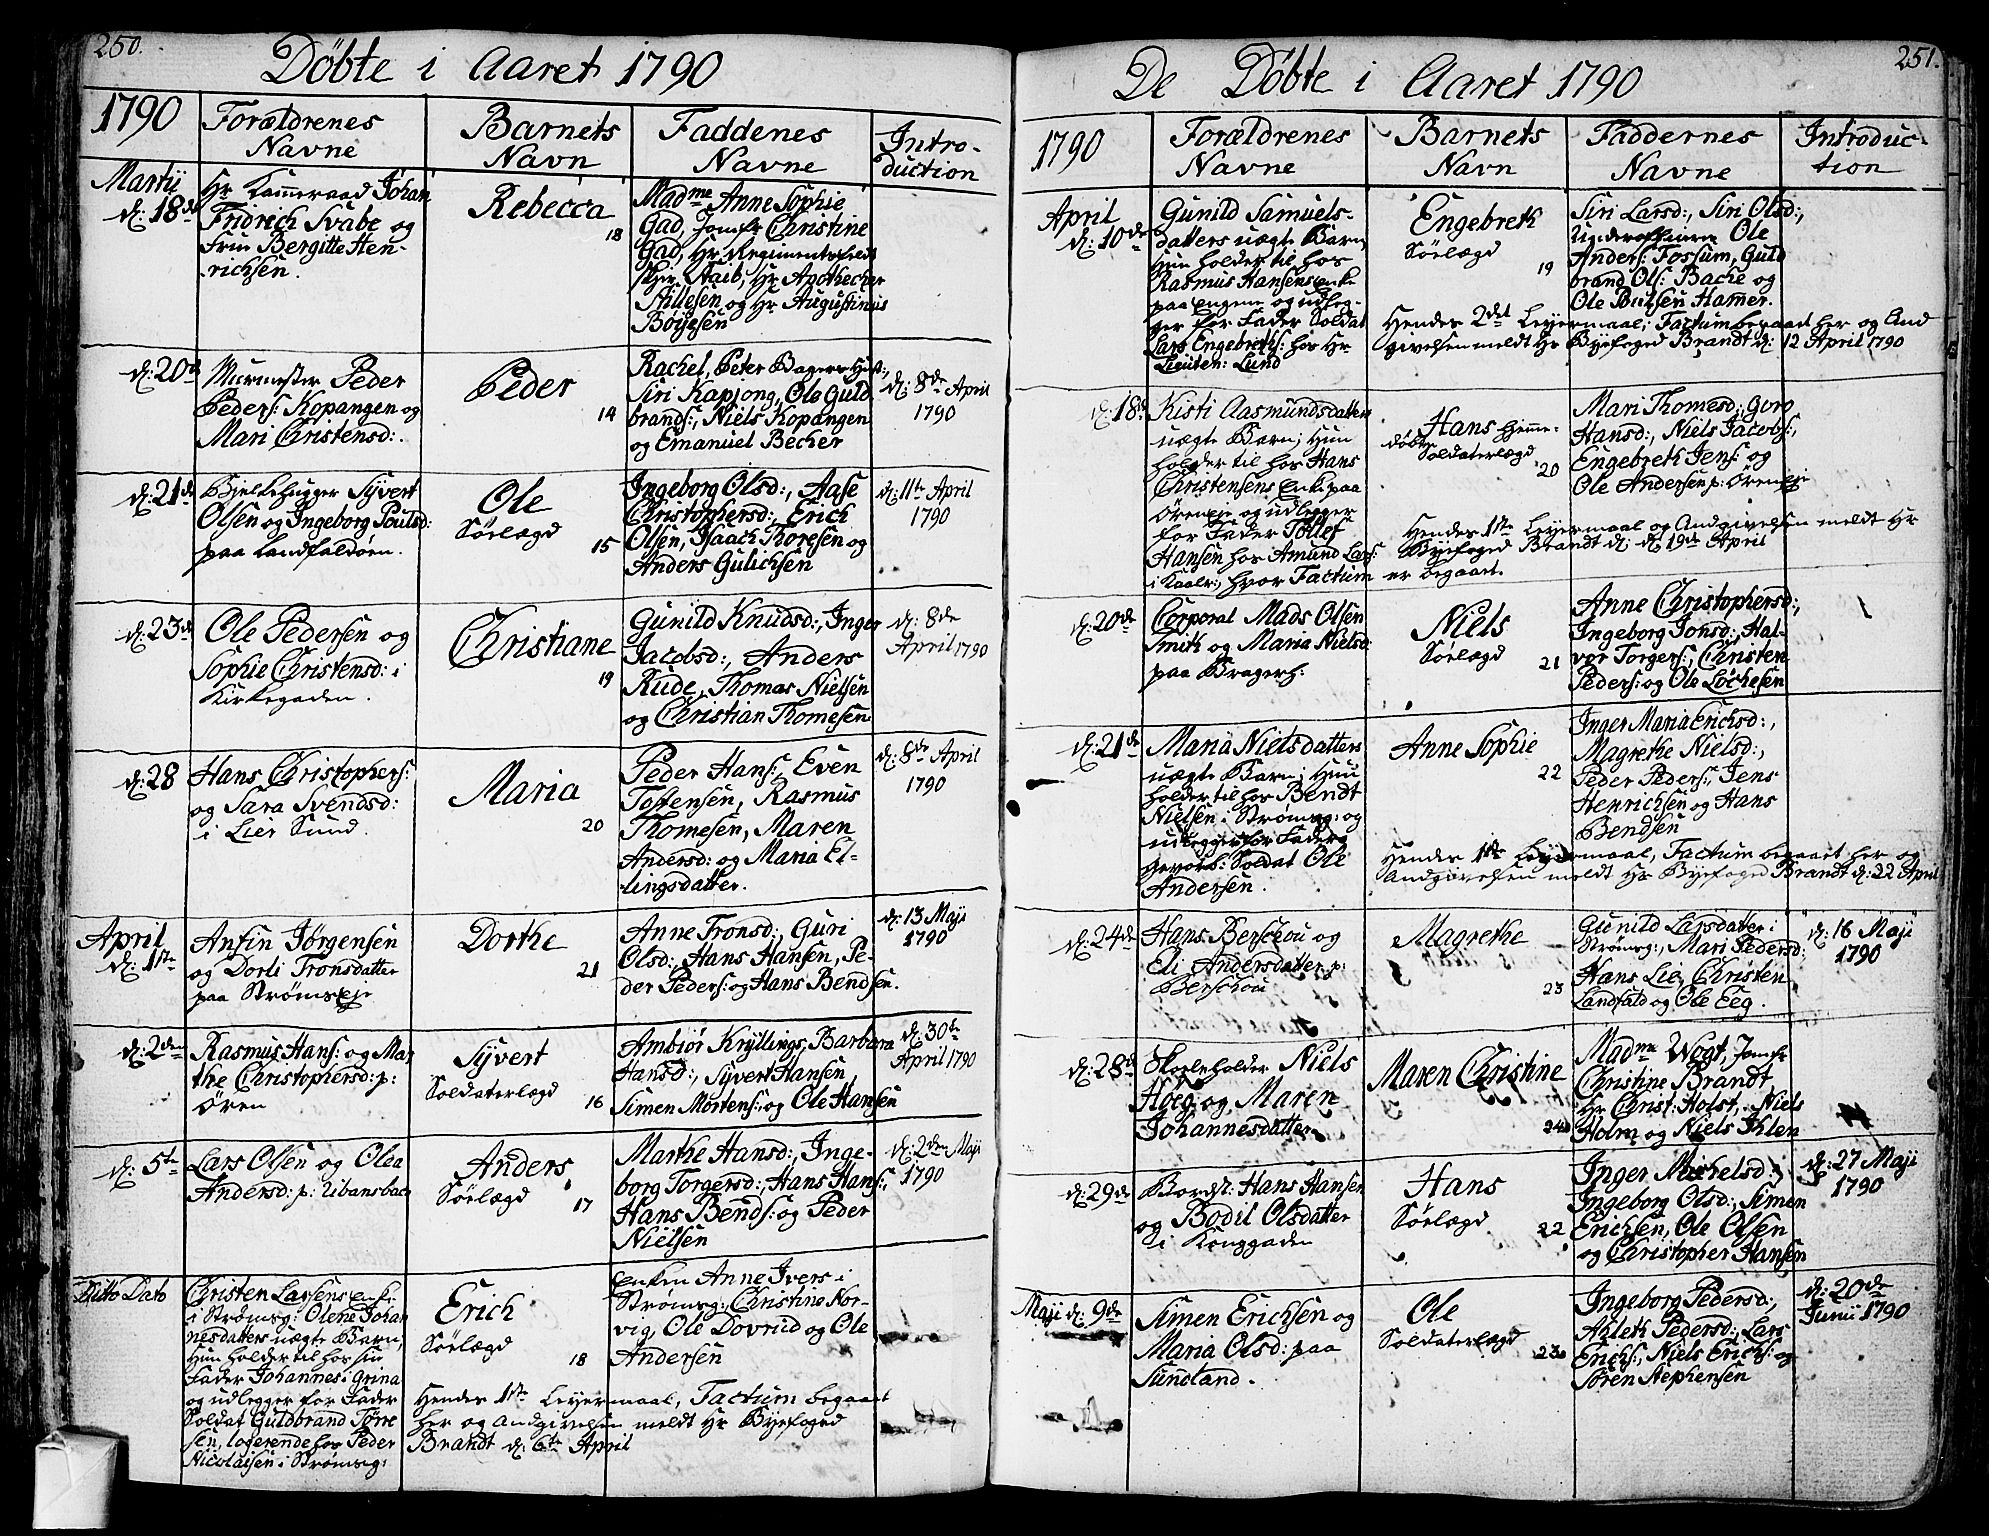 250.
Döbte i Aaret 1790
1790
Forældrenes
Navne
Barnets
Navn
Faddenes
Navne
Intro-
duction
Martij
d: 18de
Hr Kammeraad Johan
Fridrich Svabe og
Frue Bergitte Hen-
richsen.
Rebecca
13
Madme Anne Sophie
Gad, Jomfr Christine
Gad, Hr Regimentsfeldt
Skjer Staib, Hr Apothecher
Stillesen og Hr Augustinus
Böyesen
d: 20de
Murmester Peder
Peders: Kopangen og
Mari Christensd:.
Peder
14
Rachel, Peter Bagers Hust:,
Siri Kapjong, Ole Guld
brands:, Niels Kopangen
og Emanuel Becher
d: 8de April
1790
d: 21de
Bjelkehugger Syvert
Olsen og Ingeborg Poulsd:
paa Landfaldöen.
Ole
Sölægd
15
Ingeborg Olsd:, Aase
Christophersd:, Erich
Olsen, Isaach Thoresen og
Anders Gulichsen
d: 11te April
1790
d: 23de
Ole Pedersen og
Sophie Christensd: i
Kirkegaden.
Christiane
19
Gunild Knudsd:, Inger
Jacobsd:, Anders
Rude, Thomas Nielsen
og Christian Thomesen
d: 8de
April 1790
d: 28
Hans Christophers:
og Sara Svendsd:
i Lier Sund.
Maria
20
Peder Hans:, Even
Tostensen, Rasmus
Thomesen, Maren
Andersd: og Maria El-
lingsdatter.
d: 8de April
1790
April
d: 1ste
Anfin Jörgensen
og Dorli Tronsdatter
paa Strömsøje
Dorthe
21
Anne Tronsd:, Guri
Olsd:, Hans Hansen, Pe-
der Peders: og Hans Bendsen.
d: 13 Maji
1790
d: 2den
Rasmus Hans: og Mar
the Christophersd: p:
Ören
Syvert
Soldaterlægd
16
Ambiör Kryllings, Barbara
Hansd:, Syvert Hansen,
Simen Mortens: og Ole Hansen
d: 30te
April 1790
d: 5te
Lars Olsen og Olea
Andersd: p: Ubansbach
Anders
Sölægd
17
Marthe Hansd:, Inge-
borg Torgersd:, Hans Hans:,
Hans Bends: og Peder
Nielsen
d: 2den Maji
1790
Ditto Dato
Christen Larsens Enke
i Strömsg: Olene Johan
nesdatters uægte Barn,
Hun holder til hos sin
Fader Johannes i Grina
og udlegger for Fader
Soldat Guldbrand Törre
sen, logerende hos Peder
Nicolaisen i Strömsg:
Erich
Sölægd
18
Enken Anne Ivers i
Strömsg:, Christine Nor-
vig, Ole Dovrud og Ole
Andersen
Hendes 1ste Leyermaal, Factum begaaet
her og Andgivelsen meldt Hr Byefoged
Brandt d: 6te April
251.
De Döbte i Aaret 1790
1790
Forældrenes
Navne
Barnets
Navn
Faddernes
Navne
Introduc-
tion
April
d: 10de
Gunild Samuels-
datters uægte Barn
Hun holder til hos
Rasmus Hansens Enke
paa Engene og udleg-
ger for Fader Soldat
Lars Engebreths: hos Hr
Lieuten: Lund
Engebreth
Sölægd
19
Siri Larsd:, Siri Olsd:,
Underofficeren Ole
Anders: Fossum, Guld
brand Ols: Bache og
Ole Poulsen Hamer.
Hendes 2det Leyermaal, Factum begaaet her og And
givelsen meldt Hr Byefoged Brandt d: 12 April 1790
d: 18de
Kisti Aasmundsdatters
uægte Barn; Hun
holder til hos Hans
Christensens Enke paa
Öreneje og udlegger
for Fader Tollef
Hansen hos Amund Lars:
i Kaalr:, hvor Factum
er begaaet.
Hans Hjemme-
döbt
Soldaterlægd
20
Mari Thomesd:, Goro
Hansd:, Niels Jacobs:,
Engebreth Jens: og
Ole Andersen p: Öreneje
Hendes 1ste Leyermaal og Andgivelsen meldt Hr
Byefoged Brandt d: d: 19de April
d: 20de
Corporal Mads Olsen
Smith og Maria Nielsd:
paa Bragerh:
Niels
Sölægd
21
Anne Christophersd:,
Ingeborg Jonsd:, Hal-
vor Torgers:, Christen
Peders: og Ole Lochesen
d: 21de
Maria Nielsdatters
uægte Barn; Hun
holder til hos Bendt
Nielsen i Strömsg: og
udlegger for Fader
gevorb: Soldat Ole
Andersen.
Anne Sophie
22
Inger Maria Erichsd:,
Magrethe Nielsd:,
Peder Peders:, Jens
Henrichsen og Hans
Bendsen
Hendes 1ste Leyermaal, Factum begaaet her og
Andgivelsen meldt Hr Byefoged Brandt d: 22 April
d: 24de
Hans Berschou og
Eli Andersdatter p:
Berschou
Magrethe
23
Gunild Larsdatter i
Strömsg:, Mari Pedersd:,
Hans Lie, Christen
Landfald og Ole Eeg.
d: 16 Maji
1790
d: 28de
Skoleholder Niels
Höeg og Maren
Johannesdatter
Maren Christine
24
Madme Wogt, Jomfr
Christine Brandt,
Hr Christ: Holst, Niels
Holm og Niels Ihlen
d: 29de
Bordst: Hans Hansen
og Bodil Olsdatter
i Konggaden
Hans
Sölægd
22
Inger Michelsd:,
Ingeborg Olsd:, Simen
Erichsen, Ole Olsen
og Christopher Hansen
d: 27 Maji
1790
Maji d: 9de
Simen Erichsen og
Maria Olsd: paa
Sundland.
Ole
Soldaterlægd
23
Ingeborg Pedersd:,
Ahleth Pedersd:, Lars
Erichs:, Niels Erichs: og
Sören Stephensen
d: 20de
Junii 1790